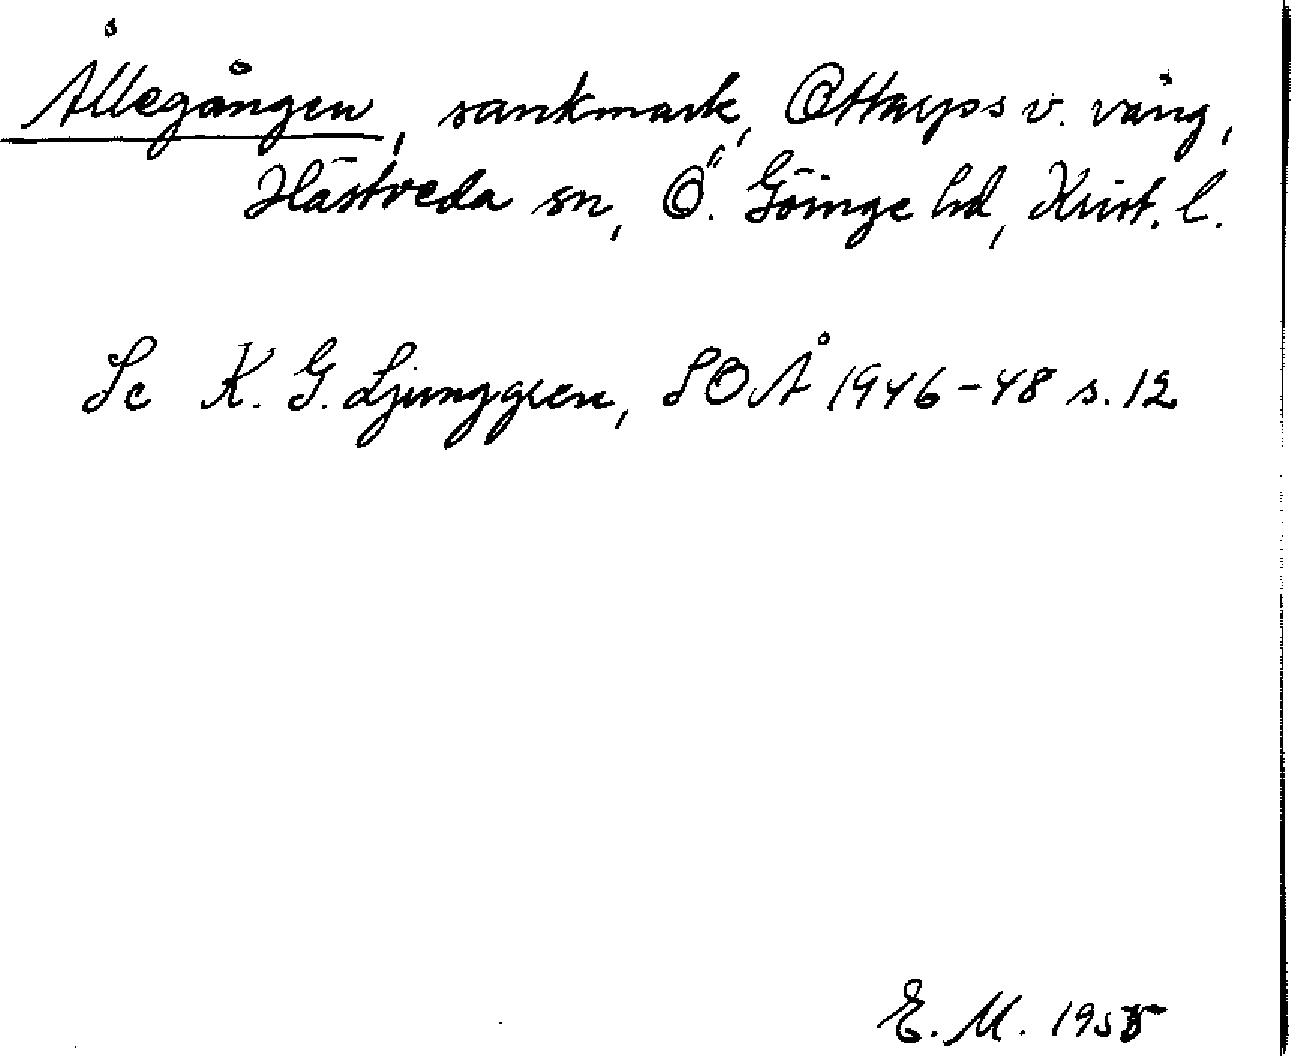 Ållegången, sankmark, Ottarps v. vång,
Hästveda sn, Ö. Göinge hd, Krist. l.
Se K. G. Ljunggren, SOÅ 1946-48 s. 12
E. M. 1955